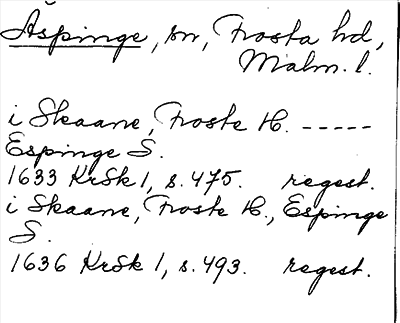 Äspinge, sn, Frosta hd,
Malm. l.
i Skaane, Froste H. -----
Espinge S.
1633 KrSk 1, s. 475. regest.
i Skaane, Froste H., Espinge
S.
1636 KrSk 1, s. 493. regest.